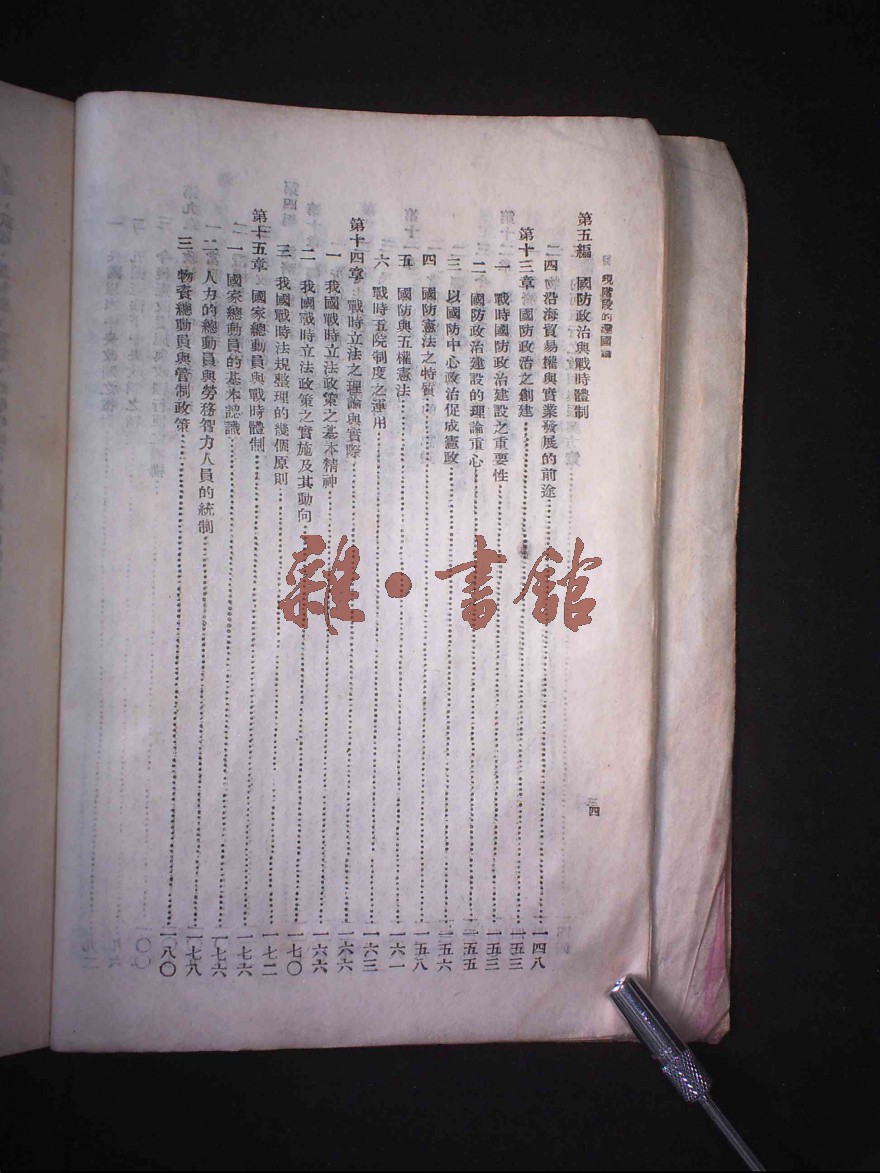 現階段的建國論
四
第五編 國防政治與戰時體制
四 沿海貿易權與實業發展的前途……一四八
第十三章 國防政治之創建……一五三
一 戰時國防政治建設之重要性……一五三
二 國防政治建設的理論重心……一五五
三 以國防中心政治促成憲政……一五六
四 國防憲法之特質……一五八
五 國防與五權憲法……一六一
六 戰時五院制度之運用……一六三
第十四章 戰時立法之理論與實際……一六六
一 我國戰時立法政策之基本精神……一六六
二 我國戰時立法政策之實施及其動向……一七〇
三 我國戰時法規整理的幾個原則……一七二
第十五章 國家總動員與戰時體制……一七六
一 國家總動員的基本認識……一七六
二 人力的總動員與勞務智力人員的統制……一七八
三 物資總動員與管制政策……一八〇
雜·書館